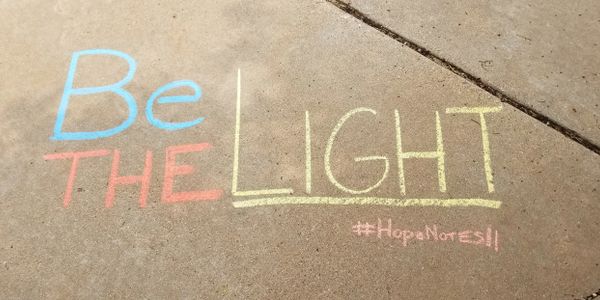 Be
THE LIGHT
#HopeNotes!!